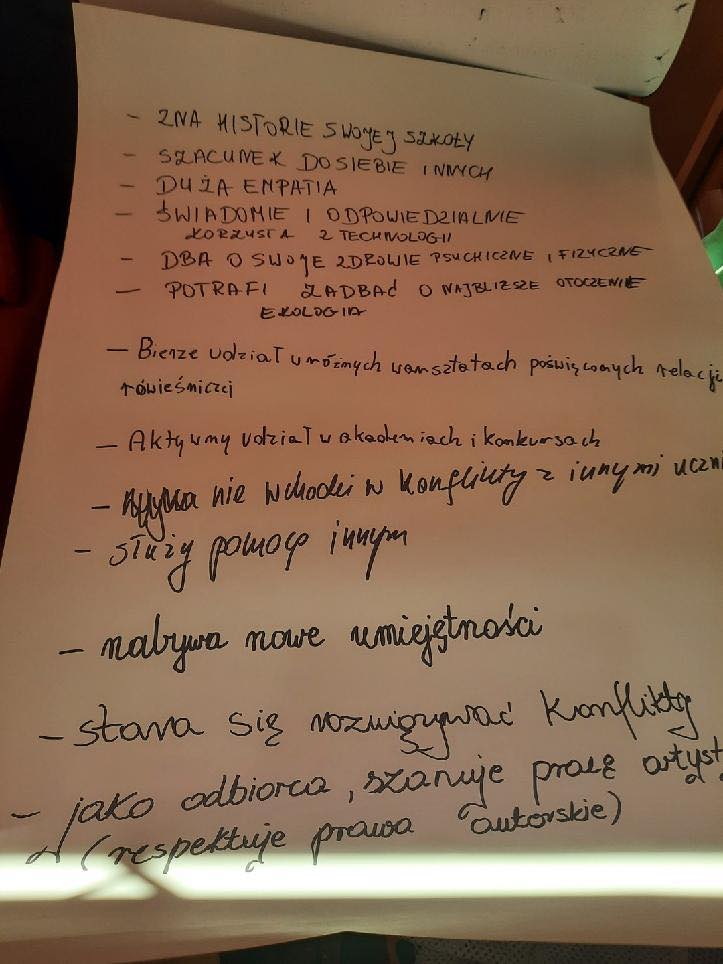 - ZNA HISTORIE SWOJEJ SZKOŁY
- SZACUNEK DO SIEBIE I INNYCH
- DUŻA EMPATIA
- ŚWIADOMIE I ODPOWIEDZIALNIE
KORZYSTA Z TECHNOLOGII
- DBA O SWOJE ZDROWIE PSYCHICZNE I FIZYCZNE
- POTRAFI ZADBAĆ O NAJBLIŻSZE OTOCZENIE
EKOLOGIA
- Bierze udział w różnych warsztatach poświęconych relacji
rówieśniczej
- Aktywny udział w akademiach i konkursach
- nie wchodzi w konflikty z innymi uczni
- służy pomocą innym
- nabywa nowe umiejętności
- stara się rozwiązywać konflikty
- jako odbiorca, szanuje pracę artyst
(respektuje prawa autorskie)